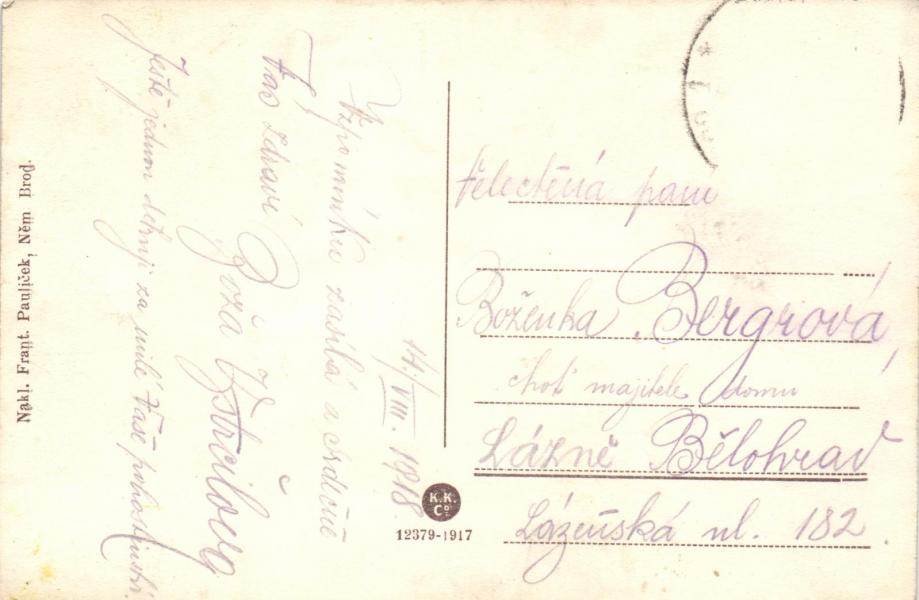 14./VIII. 1918.
Vzpomínku zasílá a srdečně
Vás zdraví
Boža
Ještě jednou děkuji za milé Vaše pohostinství.
Velectěná paní
Boženka Bergrová
choť majitele domu
Lázně Bělohrad
Lázeňská ul. 182
K.K.
Co.
12379-1917
Nakl. Frant. Pauliček, Něm Brod.